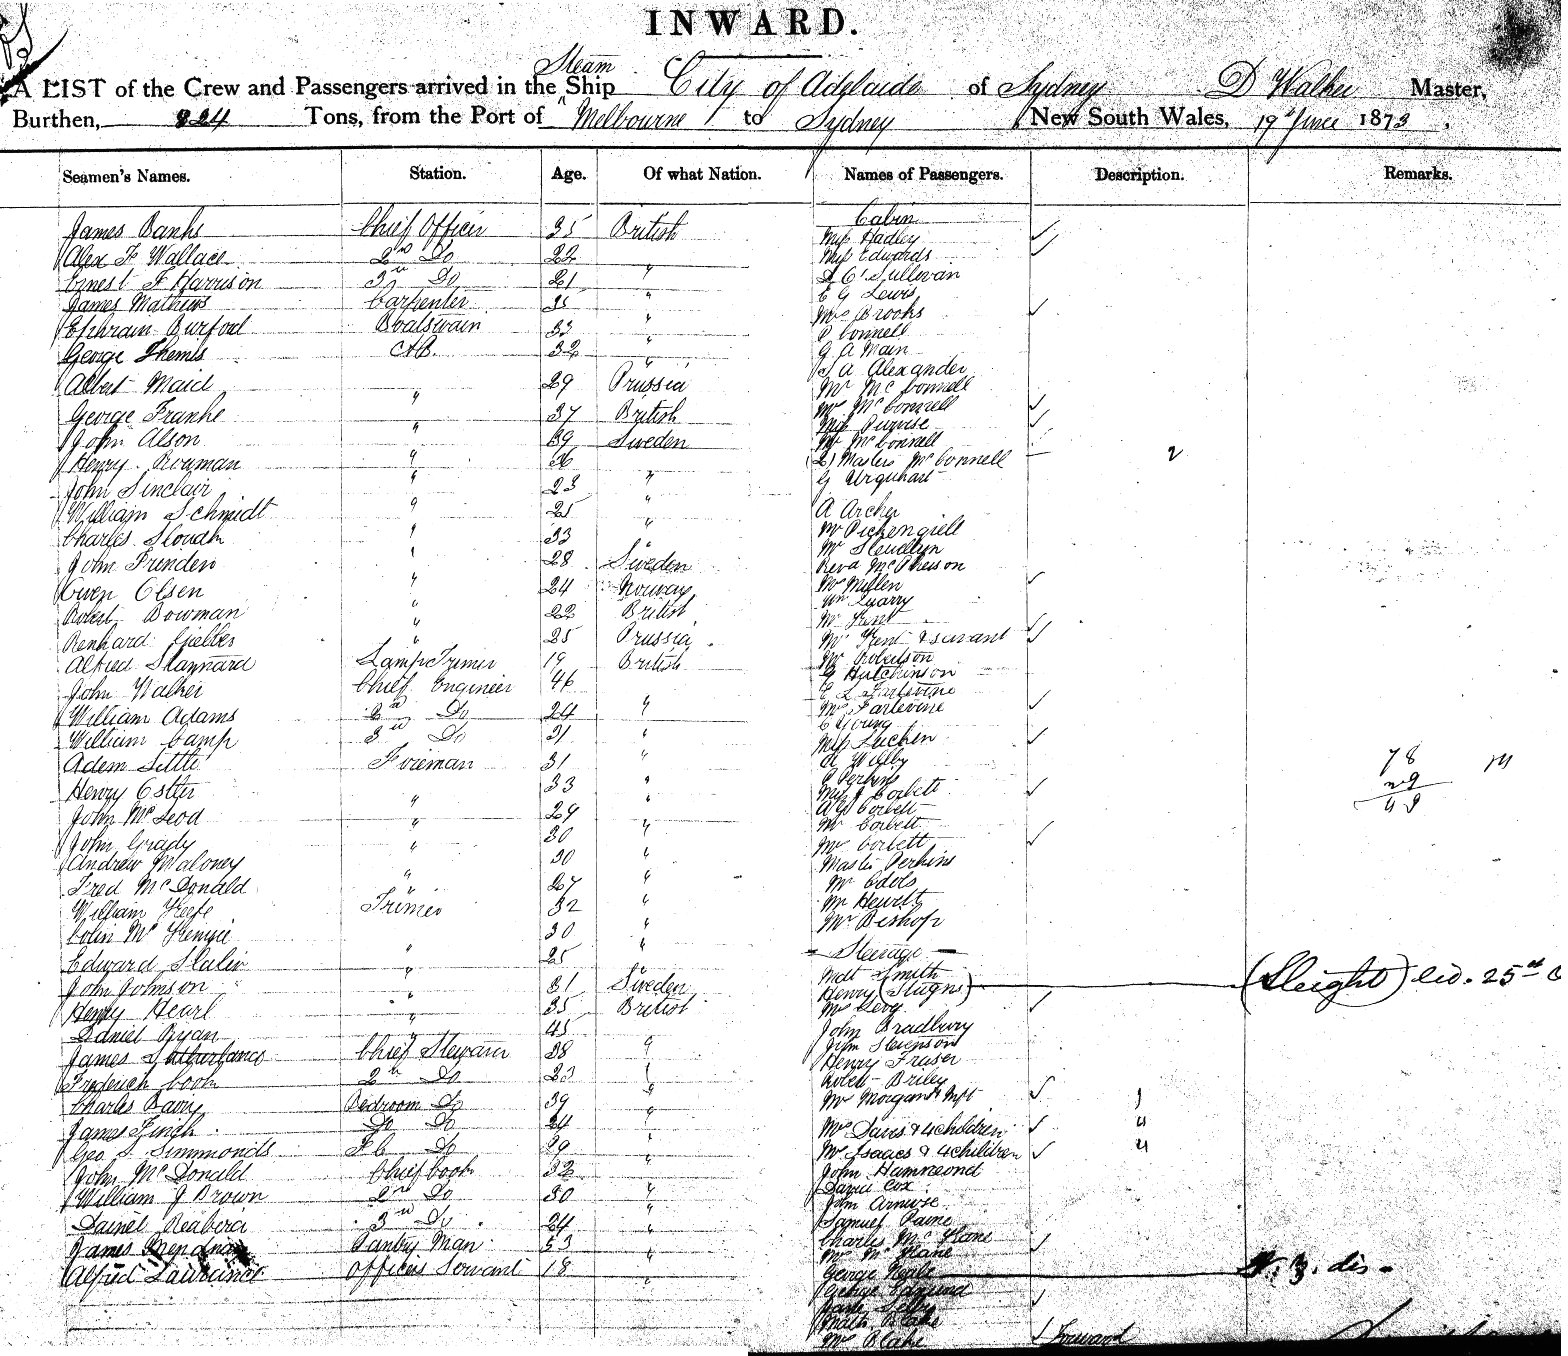 INWARD.
Steam
A LIST of the Crew and Passengers arrived in the Ship City of Adelaide of Sydney D Walker Master,
Burthen, 824 Tons, from the Port of Melbourne to Sydney New South Wales, 19th June 1873,
Seamen's Names. Station. Age. Of what Nation. Names of Passengers. Description. Remarks.
James Banks Chief Officer 35 British
Alex F Wallace 2nd Do 22
Ernest F Harrison 3rd Do 21 "
James Mathews Carpenter 35 "
Ephraim Burford Boatswain 33 "
George Themis AB. 32 "
Albert Maid " 29 Prussia
George Franke " 37 British
John Olson " 39 Sweden
Henry Bowman " 36 "
John Sinclair " 23 "
William Schmidt " 25 "
Charles " 33 "
John Frenden " 28 Sweden
Owen Olsen " 24 Norway
Robert Bowman " 22 British
Renhard " 25 Prussia
Alfred Staynard Lamp Trimer 19 British
John Walker Chief Engineer 46
William Adams 2nd Do 24 "
William Camp 3rd Do 31 "
Adam Little Fireman 31 "
Henry 33 "
John McLeod " 29 "
John Grady " 30 "
Andrew Maloney " 30 "
Fred McDonald " 27 "
William Keefe Trimer 32 "
Colin McKenzie 30 "
Edward Slatin " 25 "
John Johnson " 31 Sweden
Henry Hearl " 35 British
Daniel Ryan " 45
James Chief Steward 38 "
Frederick Cook 2nd Do 23 "
Charles Barry Bedroom Do 39 "
James Finch Do Do 24 "
Geo S Simmonds F C Do 29 "
John McDonald Chief Cook 32
William J Brown 2nd Do 30 "
Daniel 3rd Do 24 "
James Pantry Man 53 "
Alfred Lawrence Officers Servant 18 "
Cabin
Miss Hadley
Miss Edwards
D O'Sullivan
E G Lewis
Mrs Brooks
P Connell
G A Main
J A Alexander
Mr McConnell
Mrs McConnell
Miss Purvise
Mr McConnell
(2) Masters McConnell 2
G Urquhart
A Archer
Mr Pickengill
Mr
Revd McPheison
Mrs Millen
Wm Quarry
Mr Kent
Mrs Kent & servant
Mr Robertson
G Hutchinson
E L Farlevine
Mrs Farlevine
C Young
Miss
A Wilby
P Perkins
Miss J Corbett
A G Corbett
Mr Corbett
Mrs Corbett
Master Perkins
Mr Edols
Mr Hewitt
Mr Bishop
78
29
49
Steerage
Matt Smith
Henry (Stugns) (Sleight)
Mrs Levy
John Bradbury
Jim Stevenson
Henry Fraser
Robert Briley
Mrs Morgan & Inft 1
Mrs Davis & 4 children 4
Mrs Isaacs & 4 children 4
John Hammond
David Cox
John
Samuel Paine
Charles McKane
Mrs McKane
George
George
Jane Selby
Matt Blake
Mrs Blake
Forward